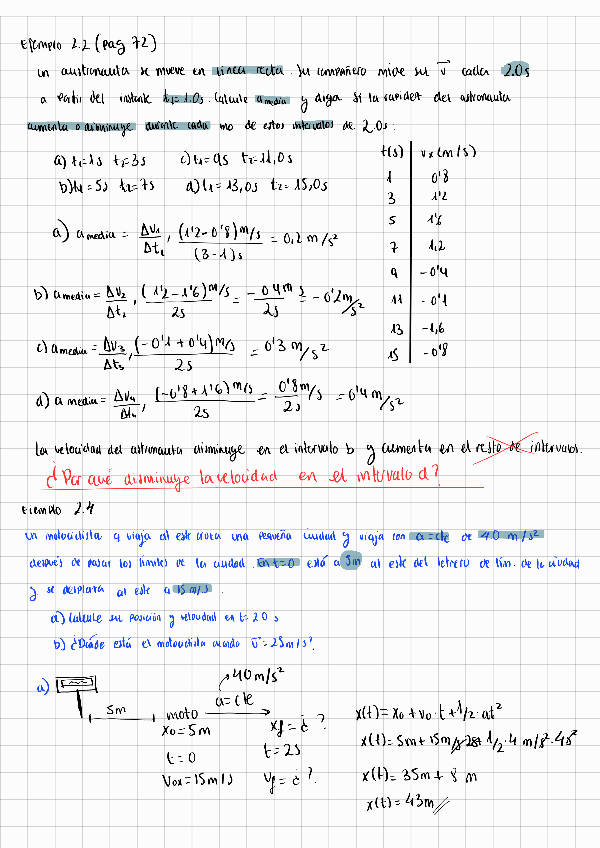 Ejemplo 2.2 (pag 72)
Un austronauta se mueve en línea recta. Su compañero mide su v cada 2.0s
a partir del instante t1=1.0s. Calcule a media y diga si la rapidez del astronauta
aumenta o disminuye durante cada uno de estos intervalos de 2.0s:
a) t1=1s t2=3s c) t1=9s t2=11,0s
b) t1=5s t2=7s d) t1=13,0s t2=15,0s
t(s) vx(m/s)
1 0'8
3 1'2
5 1'6
7 1,2
9 -0'4
11 -0'1
13 -1,6
15 -0'8
a) a media = Δv1/Δt1, (1'2-0'8)m/s/(3-1)s = 0,2 m/s²
b) a media = Δv2/Δt2, (1'2-1'6)m/s/2s = -0'4 m/s/2s = -0'2 m/s²
c) a media = Δv3/Δt3, (-0'1+0'4)m/s/2s = 0'3 m/s²
d) a media = Δv4/Δt4, (-0'8+1'6)m/s/2s = 0'8m/s/2s = 0'4 m/s²
La velocidad del astronauta disminuye en el intervalo b y aumenta en el resto de intervalos.
¿Por qué disminuye la velocidad en el intervalo d?
Ejemplo 2.4
Un motociclista q viaja al este cruza una pequeña ciudad y viaja con a=cte de 40 m/s²
después de pasar los límites de la ciudad. En t=0 está a 5m al este del letrero de lím. de la ciudad
y se desplaza al este a 15 m/s.
a) Calcule su posición y velocidad en t=20 s
b) ¿Dónde está el motociclista cuando v=25m/s?
a)
5m
moto
a=cte
40 m/s²
x0=5m
t=0
v0x=15m/s
xf=¿?
t=2s
vf=¿?
x(t)=x0+v0·t+1/2·at²
x(t)=5m+15m/s·2s+1/2·4 m/s²·4s²
x(t)=35m+8 m
x(t)=43m